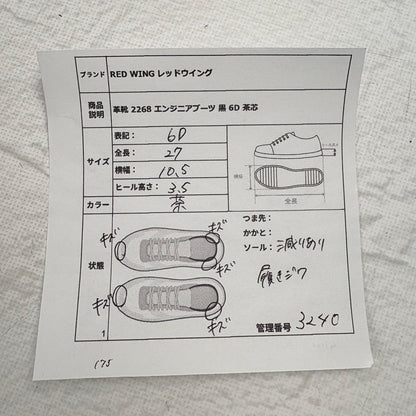 ブランド RED WING レッドウイング
商品説明 革靴 2268 エンジニアブーツ 黒 6D 茶芯
サイズ
表記: 6D
全長: 27
横幅: 10.5
ヒール高さ: 3.5
ヒール高さ
横幅
全長
カラー 茶
状態
キズ キズ
キズ
キズ
キズ
つま先:
かかと:
ソール: 減りあり
履きジワ
1
管理番号 3240
175